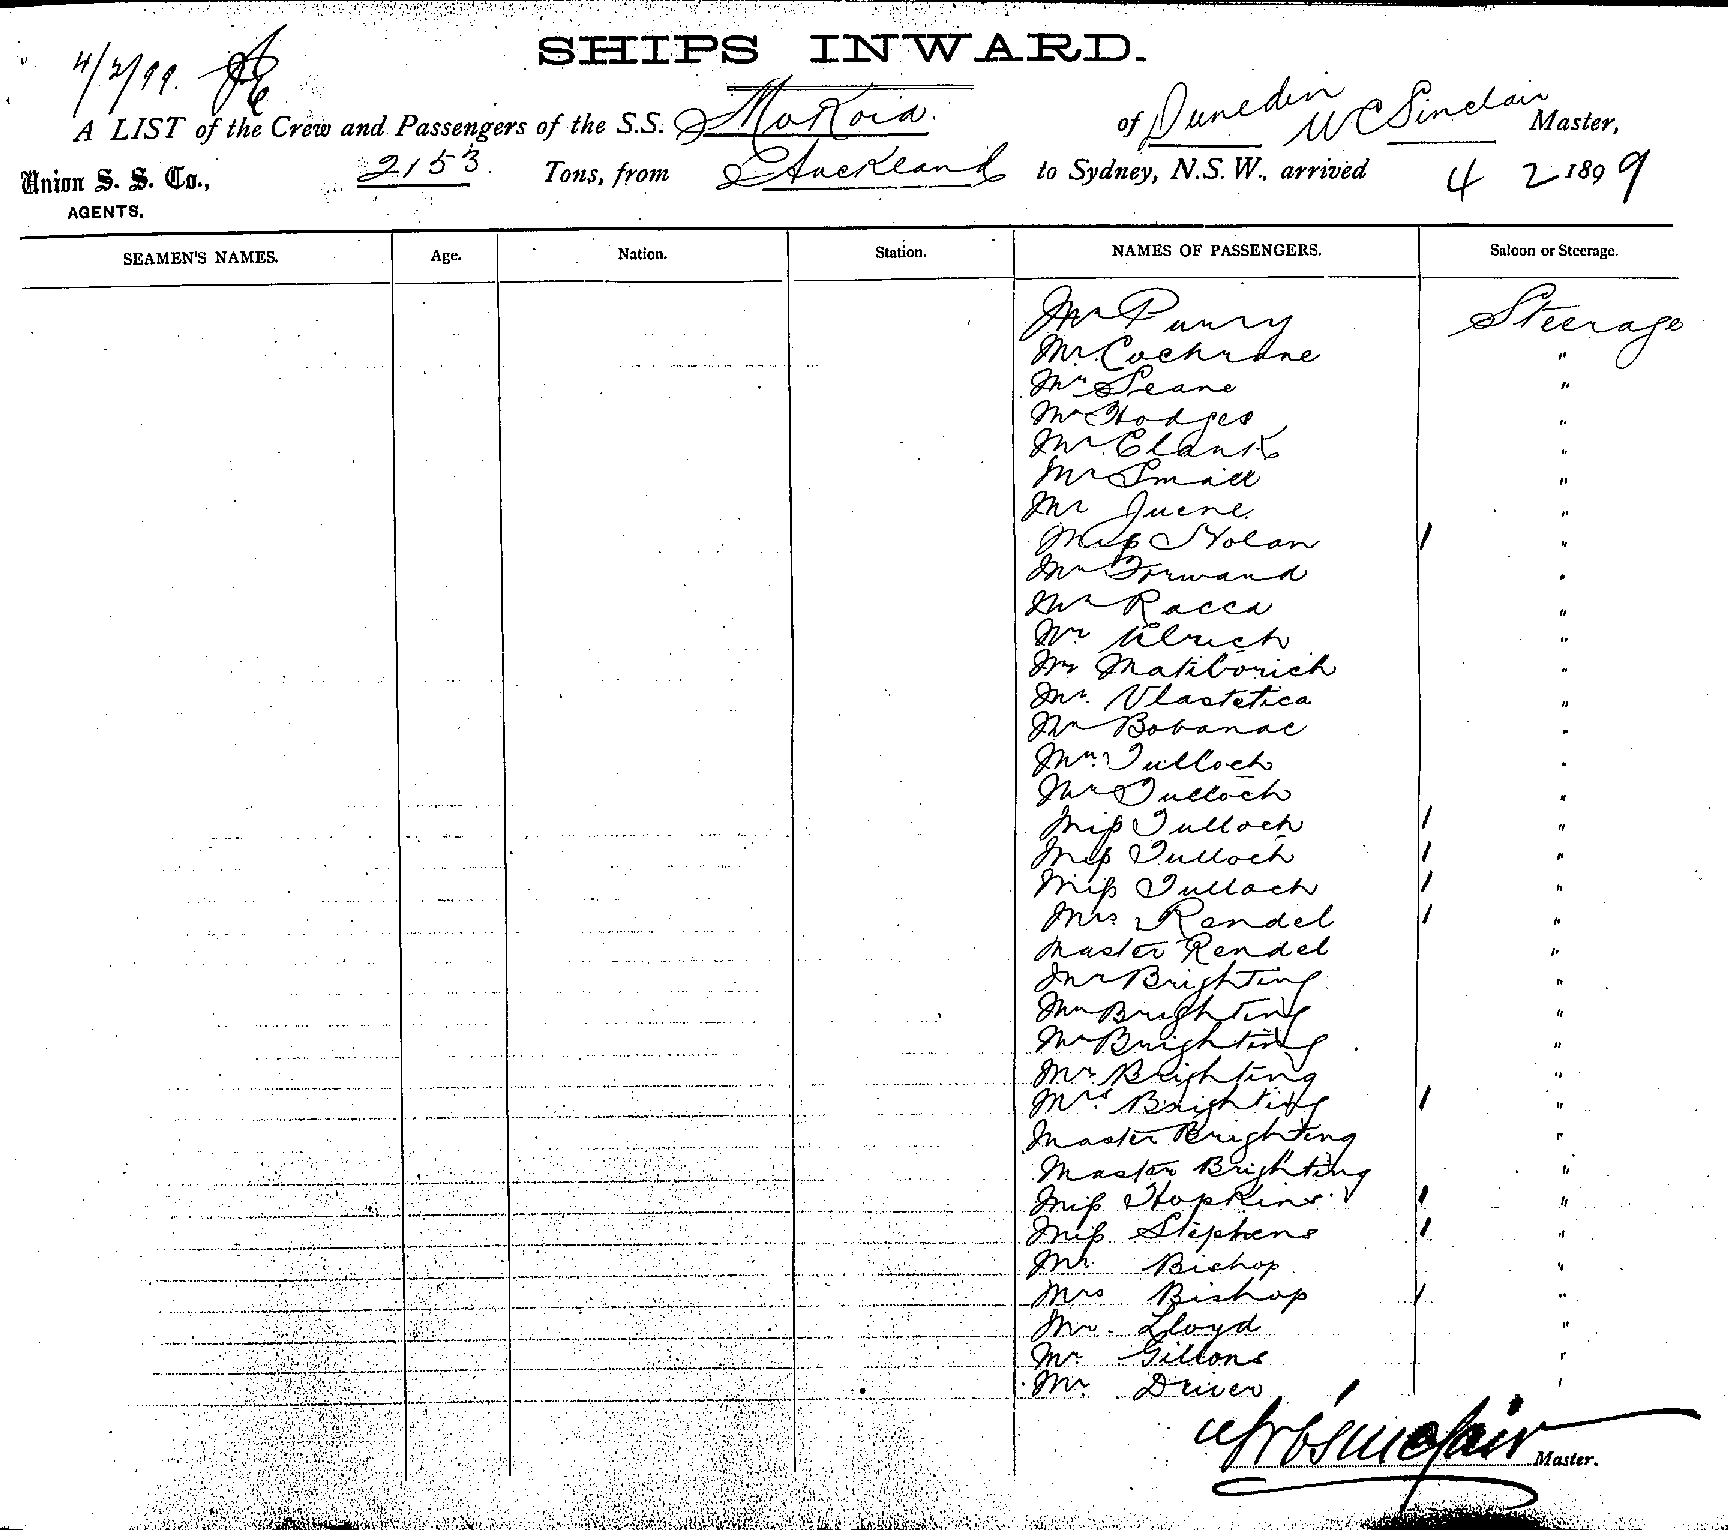 SHIPS INWARD.
4/2/99.
A LIST of the Crew and Passengers of the S.S. Mokoia. of Dunedin W C Sinclair Master,
Union S. S. Co., 2153 Tons, from Auckland to Sydney, N.S.W., arrived 4 2 1899
AGENTS.
SEAMEN'S NAMES. Age. Nation. Station. NAMES OF PASSENGERS. Saloon or Steerage.
Mr Steerage
Mr. Cochrane "
Mr Seane "
Mr Hodges "
Mr. Clark "
Mr Small "
Mr "
Miss Nolan "
Mr Forward "
Mr Racca "
Mr. Ulrich "
Mr "
Mr. Vlastetica "
Mr Bobanac "
Mr. Tulloch "
Mr Tulloch "
Miss Tulloch "
Miss Tulloch "
Miss Tulloch "
Mrs. Rendel "
Master Rendel "
Mr Brighting "
Mr Brighting "
Mr Brighting "
Mr. Brighting "
Mrs. Brighting "
Master Brighting "
Master Brighting "
Miss Hopkins "
Miss Stephens "
Mr. Bishop "
Mrs Bishop "
Mr. Lloyd "
Mr Gillons "
Mr. Driver "
W C Sinclair Master.